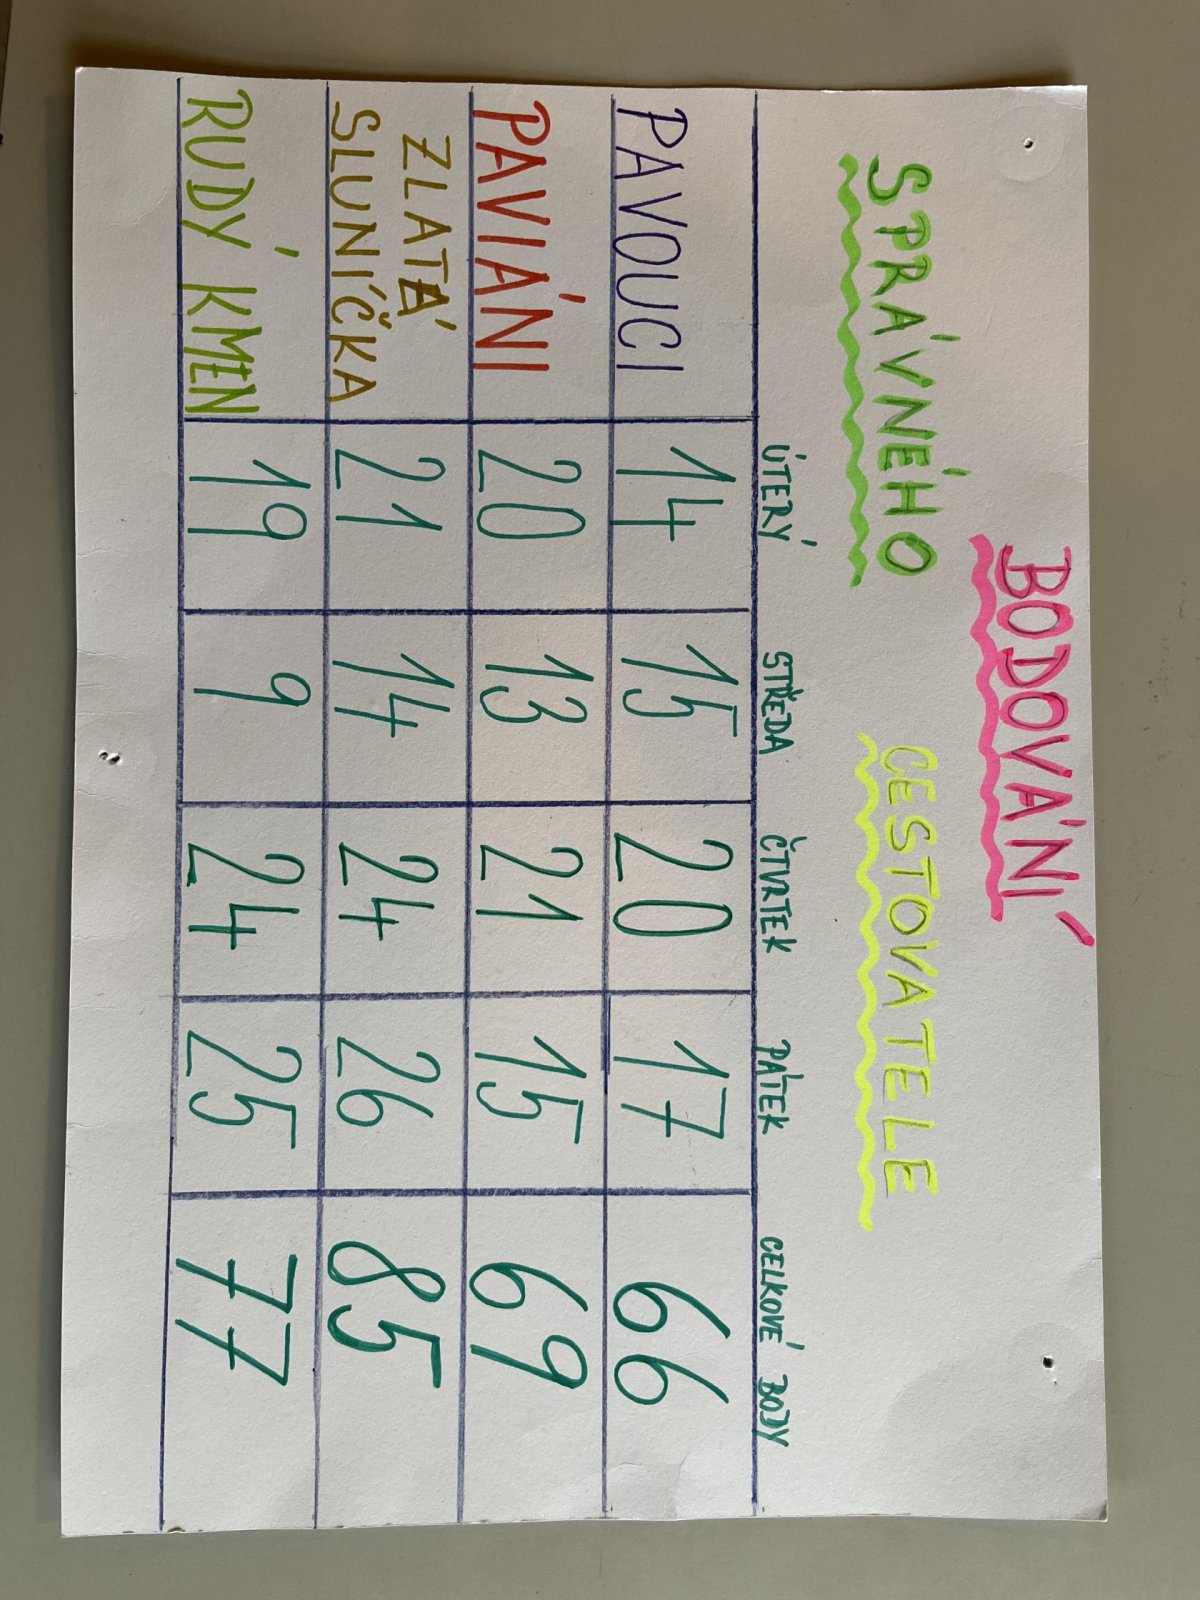 BODOVÁNÍ
SPRÁVNÉHO CESTOVATELE
ÚTERÝ STŘEDA ČTVRTEK PÁTEK CELKOVÉ BODY
PAVOUCI 14 15 20 17 66
PAVIÁNI 20 13 21 15 69
ZLATÁ
SLUNÍČKA 21 14 24 26 85
RUDÝ KMEN 19 9 24 25 77